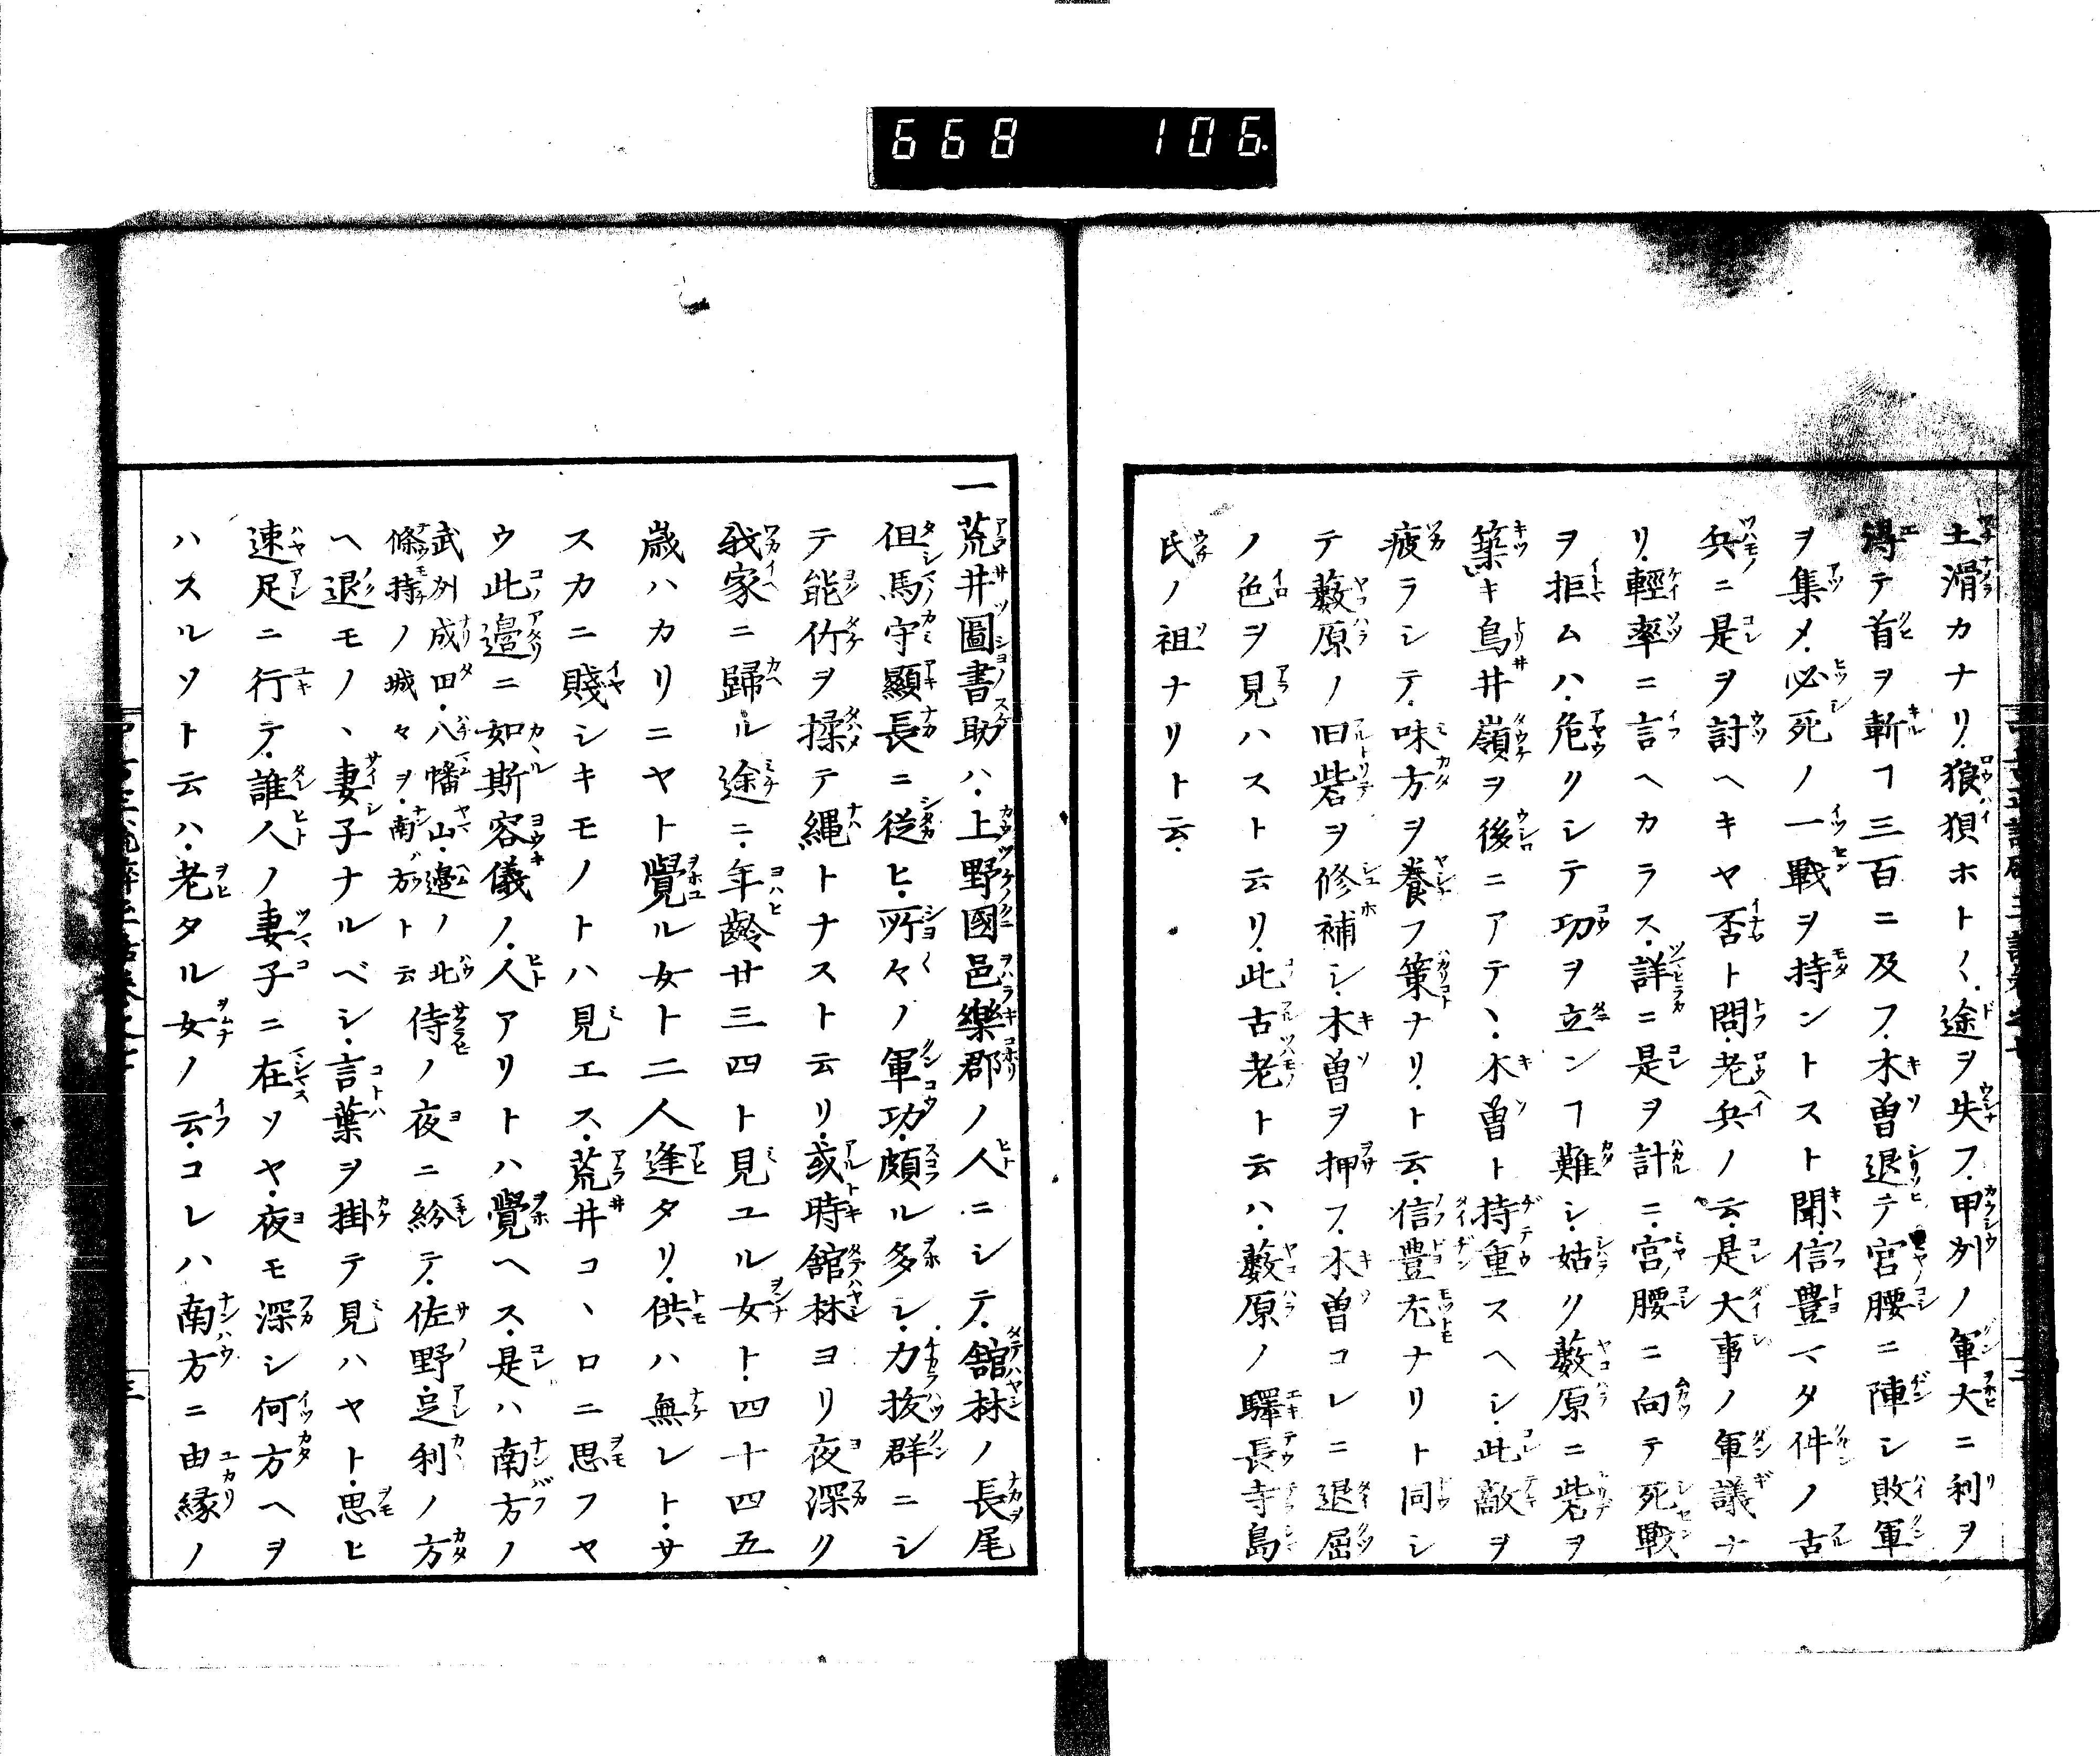 668 106.
土滑カナリ、狼狽ホト〱、途ヲ失フ、甲州ノ軍大ニ利ヲ
得テ首ヲ斬ヿ三百ニ及フ、木曽退テ宮腰ニ陣シ敗軍
ヲ集メ、必死ノ一戰ヲ持ントスト聞、信豊マタ件ノ古
兵ニ是ヲ討ヘキヤ否ト問、老兵ノ云、是大事ノ軍議ナ
リ、輕率ニ言ヘカラス、詳ニ是ヲ計ニ、宮腰ニ向テ死戰
ヲ拒ムハ、危リシテ功ヲ立ンヿ難シ、姑リ藪原ニ砦ヲ
築キ鳥井嶺ヲ後ニアテヽ、木曽ト持重スヘシ、此敵ヲ
疲ラシテ、味方ヲ養フ策ナリ、ト云、信豊尤ナリト同シ
テ藪原ノ旧砦ヲ修補シ、木曽ヲ押フ、木曽コレニ退屈
ノ色ヲ見ハスト云リ、此古老ト云ハ、藪原ノ驛長寺島
氏ノ祖ナリト云、
一荒井圖書助ハ、上野國邑樂郡ノ人ニシテ、舘林ノ長尾
但馬守顯長ニ従ヒ、所々ノ軍功、頗ル多シ、力抜群ニシ
テ能竹ヲ揉テ縄トナスト云リ、或時舘林ヨリ夜深ク
我家ニ歸ル途ニ、年齢廿三四ト見ユル女ト、四十四五
歳ハカリニヤト覺ル女ト二人逢タリ、供ハ無レト、サ
スカニ賤シキモノトハ見エス、荒井コヽロニ思フヤ
ウ此邊ニ如斯容儀ノ、人アリトハ覺ヘス、是ハ南方ノ
武州成田、八幡山、邉ノ北
條持ノ城々ヲ、南方ト云
侍ノ夜ニ紛テ、佐野足利ノ方
ヘ退モノヽ、妻子ナルベシ、言葉ヲ掛テ見ハヤト、思ヒ
速足ニ行テ、誰人ノ妻子ニ在ソヤ、夜モ深シ何方ヘヲ
ハスルソト云ハ、老タル女ノ云、コレハ南方ニ由縁ノ